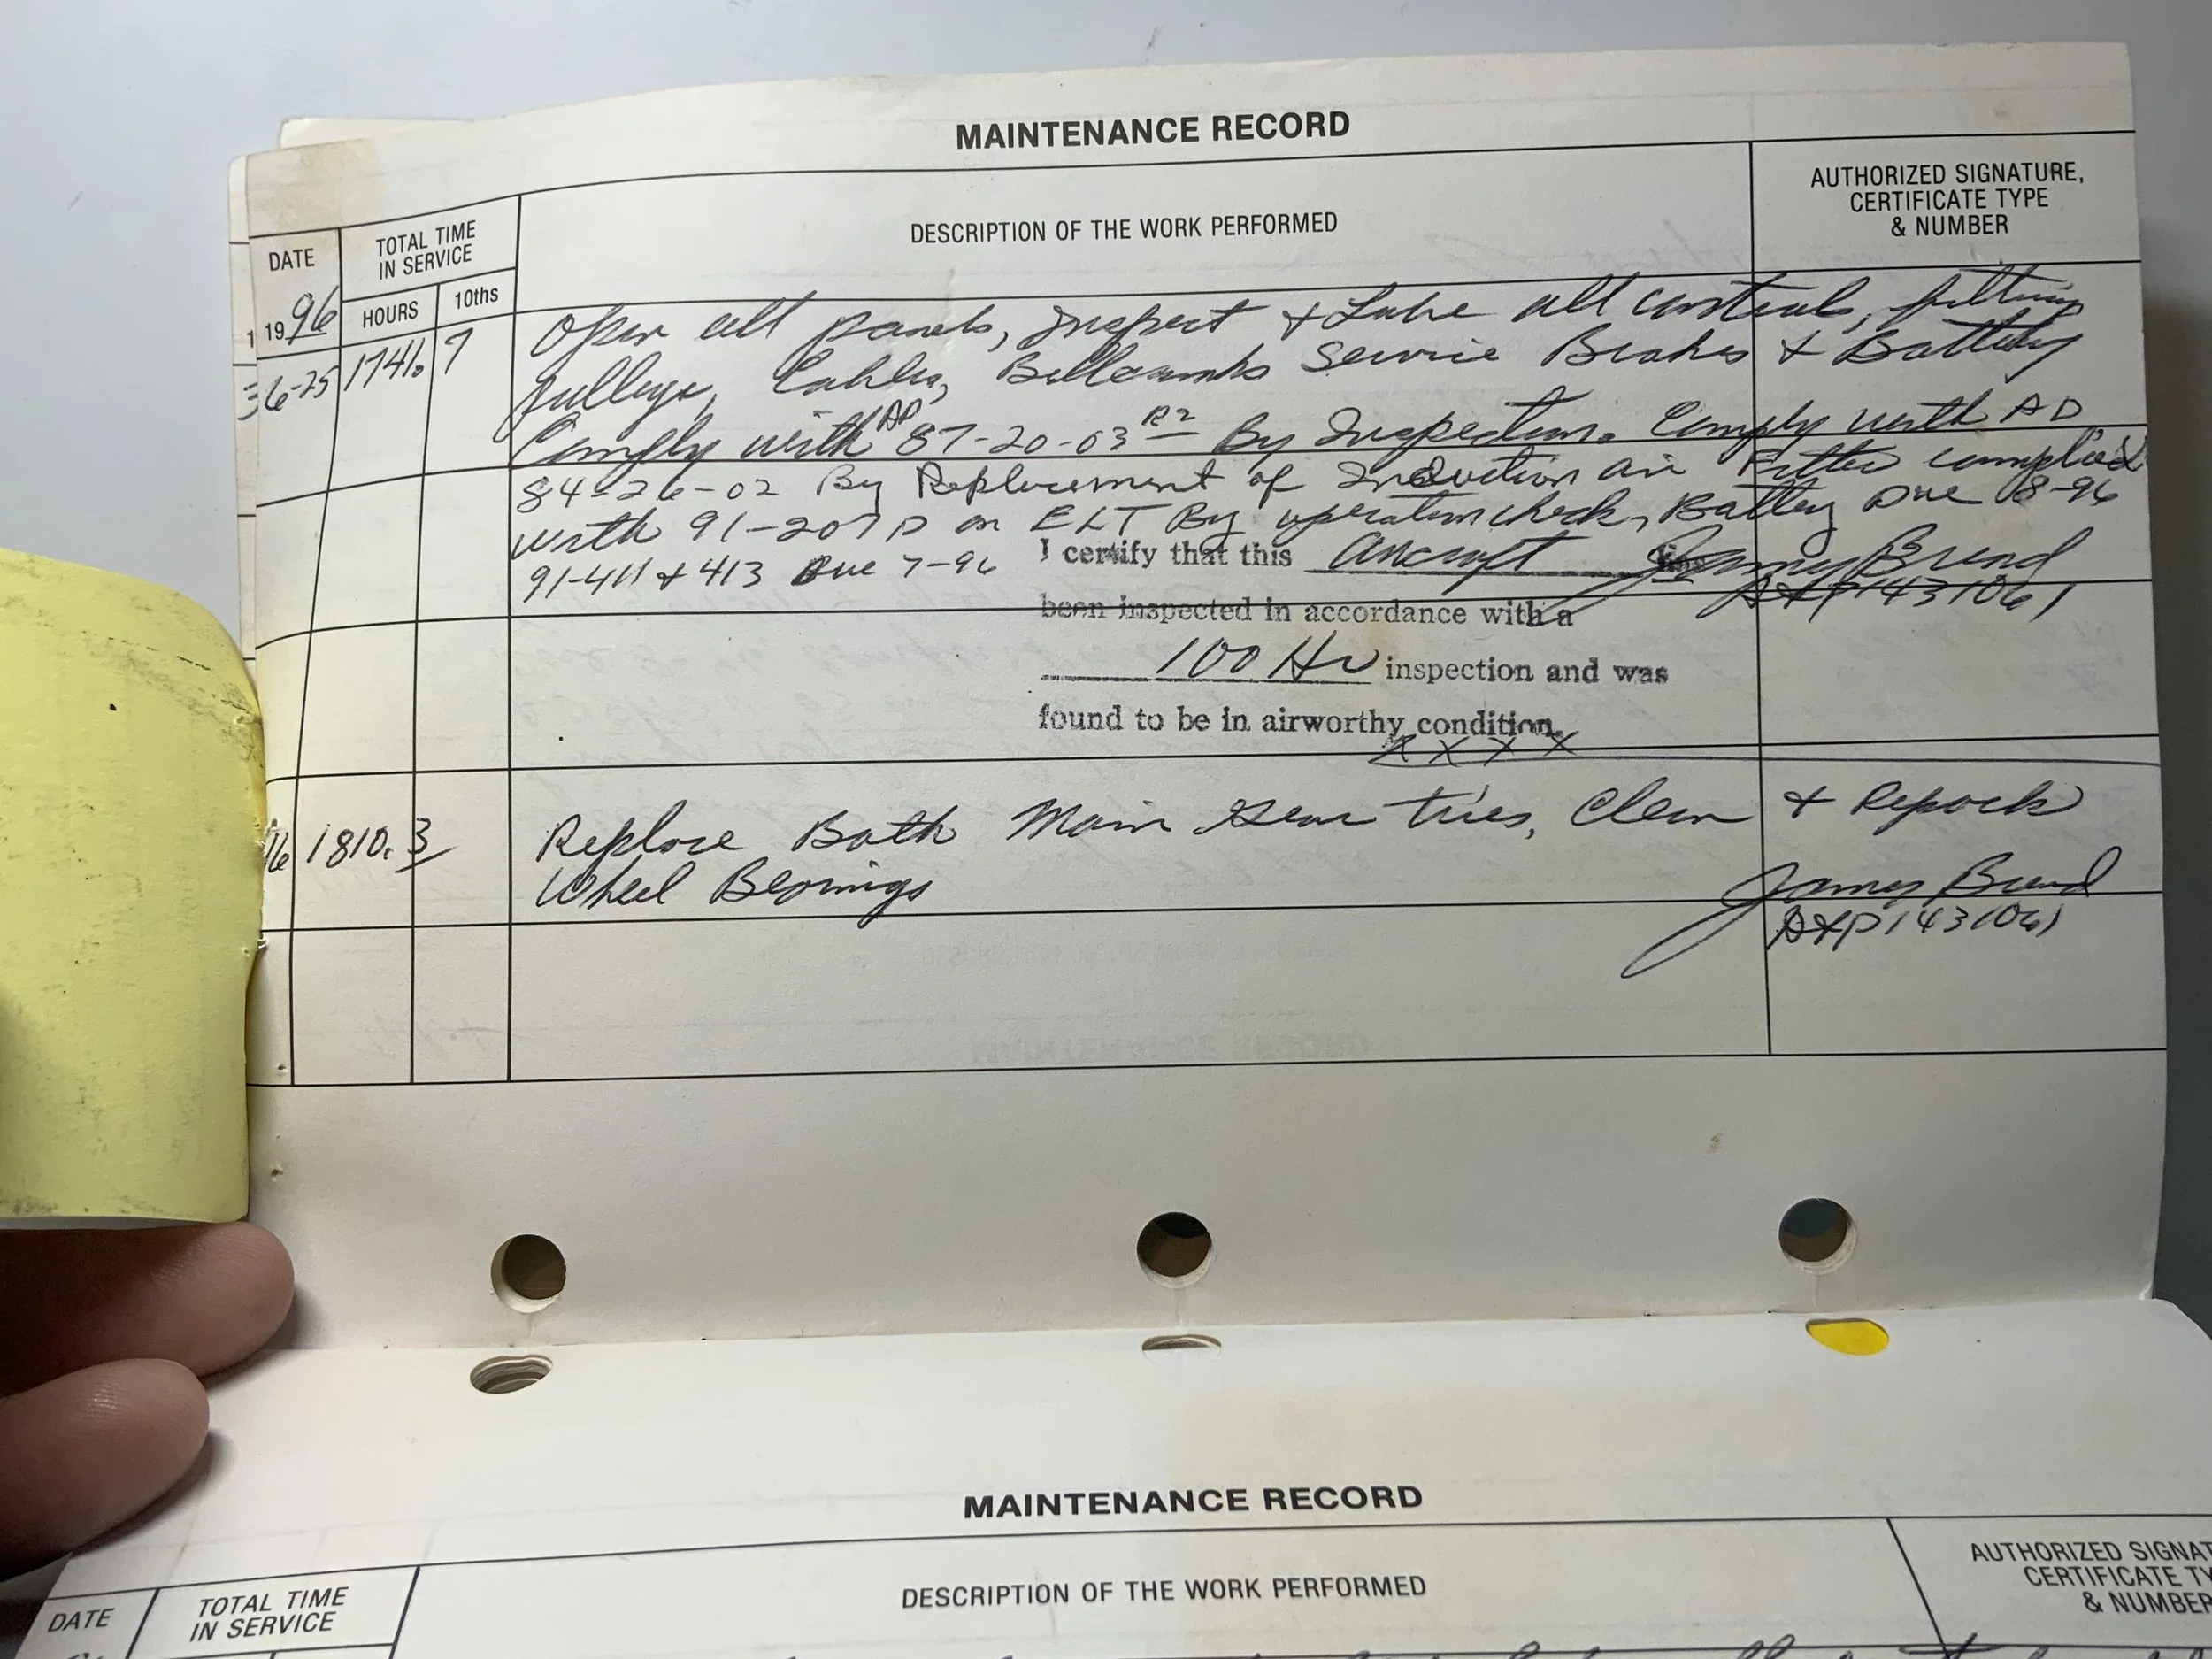 MAINTENANCE RECORD
DATE
TOTAL TIME
IN SERVICE
DESCRIPTION OF THE WORK PERFORMED
AUTHORIZED SIGNATURE,
CERTIFICATE TYPE
& NUMBER
1996
HOURS
10ths
6-25 1741. 7
Open all panels, Inspect & Lube all controls,
pulleys, Cables, Bellcranks Service Brakes & Battery
Comply with AD 87-20-03 R2 By Inspection. Comply with AD
84-26-02 By Replacement of Induction air Filter complied
with 91-207 D on ELT By operation check, Battery Due 8-96
91-411 & 413 Due 7-96
I certify that this aircraft has
James
A&P1431061
been inspected in accordance with a
100 Hr inspection and was
found to be in airworthy condition.
XXXX
16 1810. 3
Replace Both Main Gear tires, Clean & Repack
Wheel Bearings
James
A&P1431061
MAINTENANCE RECORD
DATE
TOTAL TIME
IN SERVICE
DESCRIPTION OF THE WORK PERFORMED
AUTHORIZED SIGNAT
CERTIFICATE TY
& NUMBER